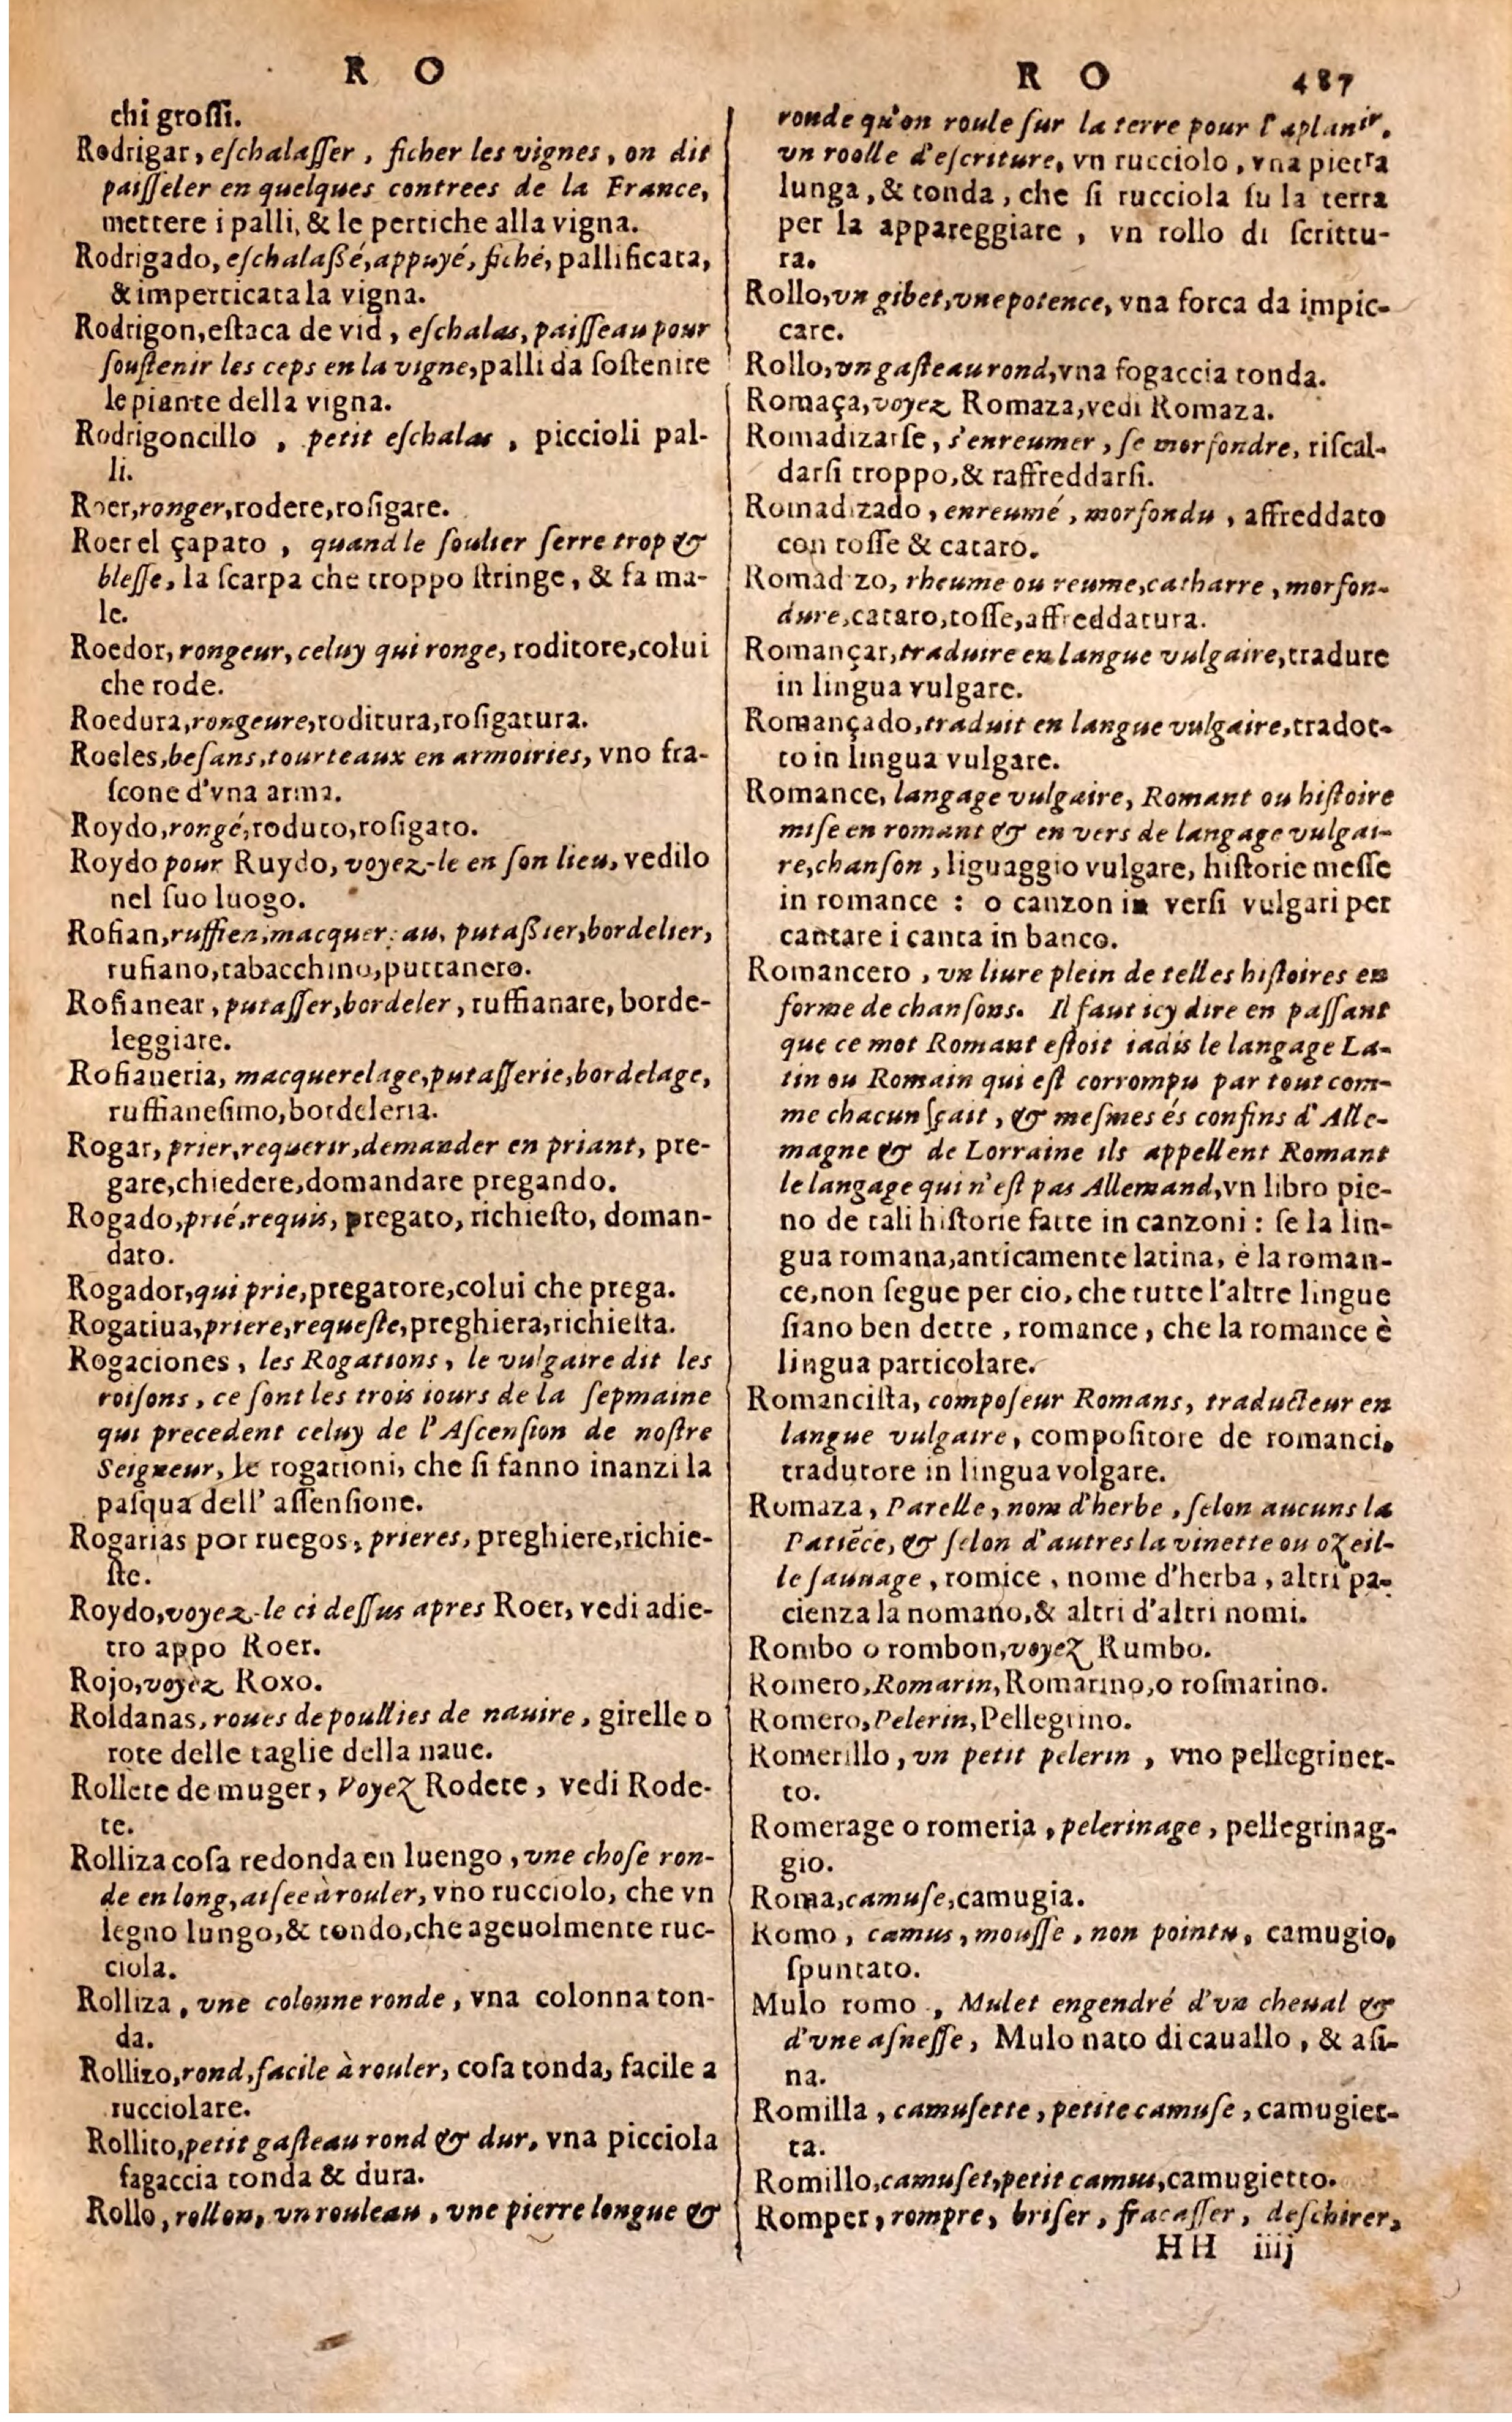 R O
chi groſſi.
Rodrigar, eſchalaſſer, ficher les vignes, on dit
paiſſeler en quelques contrees de la France,
mettere i palli, & le pertiche alla vigna.
Rodrigado, eſchalaßé, appuyé, fiché, pallificata,
& imperticata la vigna.
Rodrigon, eſtaca de vid, eſchalas, paiſſeau pour
ſouſtenir les ceps en la vigne, palli da ſoſtenire
le piante della vigna.
Rodrigoncillo, petit eſchalas, piccioli pal-
li.
Roer, ronger, rodere, roſigare.
Roer el çapato, quand le ſoulier ſerre trop &
bleſſe, la ſcarpa che troppo ſtringe, & fa ma-
le.
Roedor, rongeur, celuy qui ronge, roditore, colui
che rode.
Roedura, rongeure, roditura, roſigatura.
Roeles, beſans, tourteaux en armoiries, vno fra-
ſcone d'vna arma.
Roydo, rongé, roduto, roſigato.
Roydo pour Ruydo, voyez-le en ſon lieu, vedilo
nel ſuo luogo.
Rofian, ruffien, macquereau, putaßier, bordelier,
rufiano, tabacchino, puttanero.
Rofianear, putaſſer, bordeler, ruffianare, borde-
leggiare.
Rofianeria, macquerelage, putaſſerie, bordelage,
ruffianeſimo, bordeleria.
Rogar, prier, requerir, demander en priant, pre-
gare, chiedere, domandare pregando.
Rogado, prié, requis, pregato, richieſto, doman-
dato.
Rogador, qui prie, pregatore, colui che prega.
Rogatiua, priere, requeſte, preghiera, richieſta.
Rogaciones, les Rogations, le vulgaire dit les
roiſons, ce ſont les trois iours de la ſepmaine
qui precedent celuy de l'Aſcenſion de noſtre
Seigneur, le rogationi, che ſi fanno inanzi la
paſqua dell' aſſenſione.
Rogarias por ruegos, prieres, preghiere, richie-
ſte.
Roydo, voyez-le ci deſſus apres Roer, vedi adie-
tro appo Roer.
Rojo, voyèz Roxo.
Roldanas, roues de poullies de nauire, girelle o
rote delle taglie della naue.
Rollete de muger, Voyez Rodete, vedi Rode-
te.
Rolliza coſa redonda en luengo, vne choſe ron-
de en long, aiſee à rouler, vno rucciolo, che vn
legno lungo, & tondo, che ageuolmente ruc-
ciola.
Rolliza, vne colonne ronde, vna colonna ton-
da.
Rollizo, rond, facile à rouler, coſa tonda, facile a
rucciolare.
Rollito, petit gaſteau rond & dur, vna picciola
fagaccia tonda & dura.
Rollo, rollon, vn rouleau, vne pierre longue &
R O 487
ronde qu'on roule ſur la terre pour l'aplanir,
vn roolle d'eſcriture, vn rucciolo, vna pietra
lunga, & tonda, che ſi rucciola ſu la terra
per la appareggiare, vn rollo di ſcrittu-
ra.
Rollo, vn gibet, vne potence, vna forca da impic-
care.
Rollo, vn gaſteau rond, vna fogaccia tonda.
Romaça, voyez Romaza, vedi Romaza.
Romadizarſe, s'enreumer, ſe morfondre, riſcal-
darſi troppo, & raffreddarſi.
Romadizado, enreumé, morfondu, affreddato
con toſſe & cataro.
Romadizo, rheume ou reume, catharre, morfon-
dure, cataro, toſſe, affreddatura.
Romançar, traduire en langue vulgaire, tradure
in lingua vulgare.
Romançado, traduit en langue vulgaire, tradot-
to in lingua vulgare.
Romance, langage vulgaire, Romant ou hiſtoire
miſe en romant & en vers de langage vulgai-
re, chanſon, liguaggio vulgare, hiſtorie meſſe
in romance : o canzon in verſi vulgari per
cantare i canta in banco.
Romancero, vn liure plein de telles hiſtoires en
forme de chanſons. Il faut icy dire en paſſant
que ce mot Romant eſtoit iadis le langage La-
tin ou Romain qui eſt corrompu par tout com-
me chacun ſçait, & meſmes és confins d'Alle-
magne & de Lorraine ils appellent Romant
le langage qui n'eſt pas Allemand, vn libro pie-
no de tali hiſtorie fatte in canzoni : ſe la lin-
gua romana, anticamente latina, è la roman-
ce, non ſegue per cio, che tutte l'altre lingue
ſiano ben dette, romance, che la romance è
lingua particolare.
Romanciſta, compoſeur Romans, traducteur en
langue vulgaire, compoſitore de romanci,
tradutore in lingua volgare.
Romaza, Parelle, nom d'herbe, ſelon aucuns la
Patiẽce, & ſelon d'autres la vinette ou ozeil-
le ſauuage, romice, nome d'herba, altri pa-
cienza la nomano, & altri d'altri nomi.
Rombo o rombon, voyez Rumbo.
Romero, Romarin, Romarino, o roſmarino.
Romero, Pelerin, Pellegrino.
Romerillo, vn petit pelerin, vno pellegrinet-
to.
Romerage o romeria, pelerinage, pellegrinag-
gio.
Roma, camuſe, camugia.
Romo, camus, mouſſe, non pointu, camugio,
ſpuntato.
Mulo romo, Mulet engendré d'vn cheual &
d'vne aſneſſe, Mulo nato di cauallo, & aſi-
na.
Romilla, camuſette, petite camuſe, camugiet-
ta.
Romillo, camuſet, petit camus, camugietto.
Romper, rompre, briſer, fracaſſer, deſchirer,
HH iiij